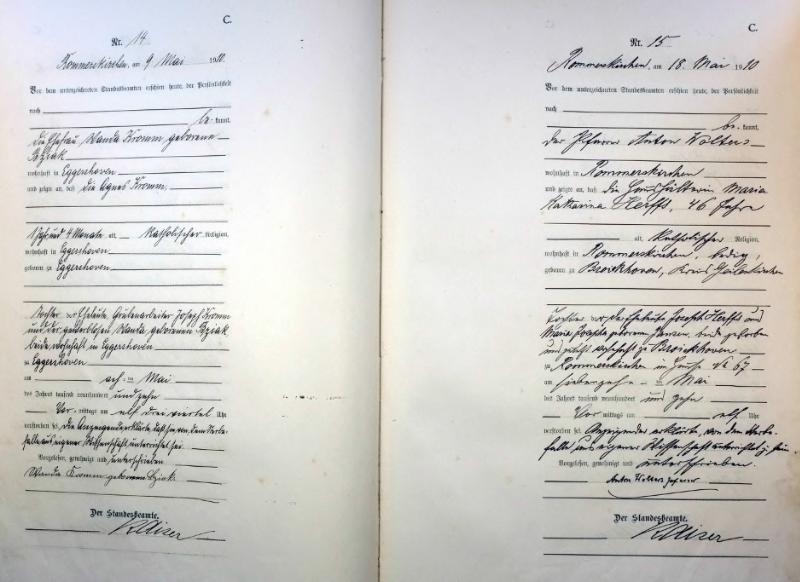 C.
Nr. 14
Rommerskirchen, am 9 Mai 1910
Vor dem unterzeichneten Standesbeamten erschien heute, der Persönlichkeit
nach
be kannt,
die Ehefrau Wanda Kromm geborene
wohnhaft in Eggershoven
und zeigte an, daß die Agnes Kromm,
1 Jahr und 4 Monate alt, katholischer Religion,
wohnhaft in Eggershoven
geboren zu Eggershoven
Tochter der Eheleute, Grubenarbeiter Joseph Kromm
und der gewerblosen Wanda geborenen
beide wohnhaft in Eggershoven
zu Eggershoven
am acht ten Mai
des Jahres tausend neunhundert und zehn
Vor mittags um elf drei viertel Uhr
verstorben sei. Die Anzeigende erklärte, daß sie von dem Sterbe-
falle aus eigener Wissenschaft unterrichtet sei.
Vorgelesen, genehmigt und unterschrieben
Wanda Kromm geborene
Der Standesbeamte.
C.
Nr. 15
Rommerskirchen, am 18. Mai 1910
Vor dem unterzeichneten Standesbeamten erschien heute, der Persönlichkeit
nach
be kannt,
der Pfarrer Anton Wolters
wohnhaft in Rommerskirchen
und zeigte an, daß die Haushälterin Maria
Katharina Herffs, 46 Jahre
alt, katholischer Religion,
wohnhaft in Rommerskirchen, ledig,
geboren zu Broichhoven, Kreis Geilenkirchen
Tochter der Eheleute Joseph Herffs und
Maria Josepha geborene Janssen, beide gestorben
und zuletzt wohnhaft zu Broichhoven
zu Rommerskirchen in Hause No 67
am siebenzehn ten Mai
des Jahres tausend neunhundert und zehn
Vor mittags um elf Uhr
verstorben sei. Anzeigender erklärte, von dem Sterbe-
falle aus eigener Wissenschaft unterrichtet zu sein.
Vorgelesen, genehmigt und unterschrieben.
Anton Wolters Pfarrer
Der Standesbeamte.